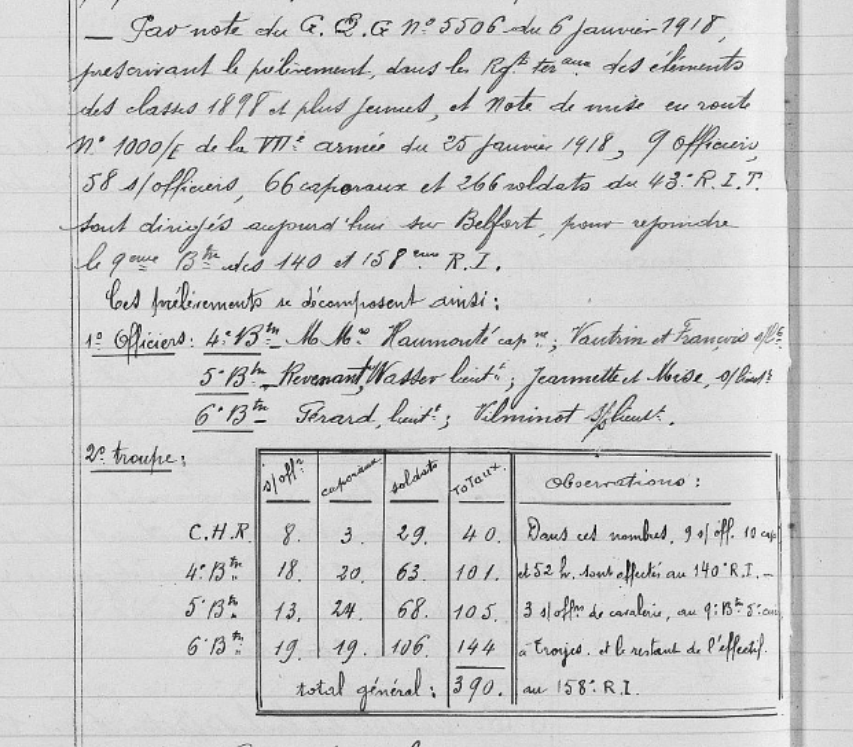 — Par note du G.Q.G N° 5506 du 6 janvier 1918,
prescrivant le prélèvement, dans les Rgts teraux des éléments
des classes 1898 et plus jeunes, et Note de mise en route
N° 1000/E de la VIIe armée du 25 janvier 1918, 9 officiers,
58 s/officiers, 66 caporaux et 266 soldats du 43e R.I.T.
sont dirigés aujourd'hui sur Belfort, pour rejoindre
le 9eme Btn des 140 et 158eme R.I.
Ces prélèvements se décomposent ainsi :
1° Officiers : 4e Btn MMrs Haumonté capne ; Vautrin et François s/lts
5e Btn Revenant, Wasser lieutt ; Jeannette et Mise, s/lieutt
6e Btn Férard, lieutt ; Vilminot s/lieutt.
2° troupe :
s/offrs caporaux soldats Totaux. Observations :
C.H.R. 8. 3. 29. 40. Dans ces nombres, 9 s/off. 10 cap
4e Btn 18. 20. 63. 101. et 52 h. sont affectés au 140e R.I. —
5e Btn 13. 24. 68. 105. 3 s/offrs de cavalerie, au 9e Btn 5e
6e Btn 19. 19. 106. 144 à Troyes. et le restant de l'effectif.
total général : 390. au 158e R.I.